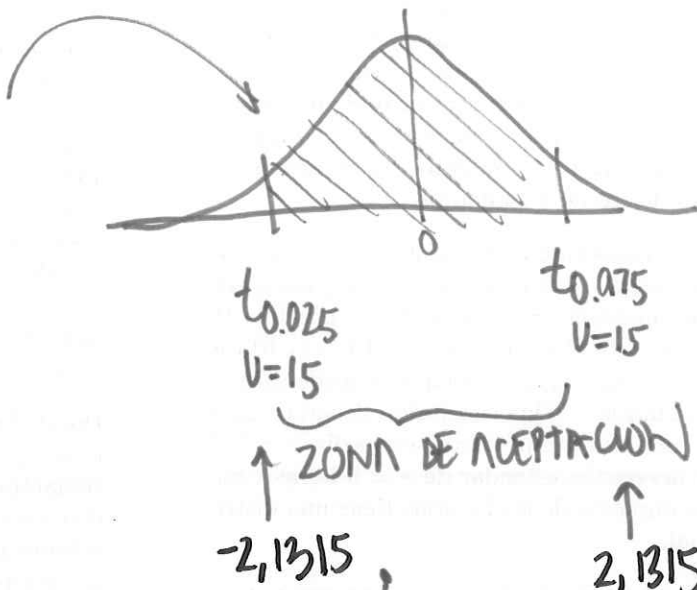 0
t0.025
t0.975
V=15
V=15
ZONA DE ACEPTACION
-2,1315
2,1315